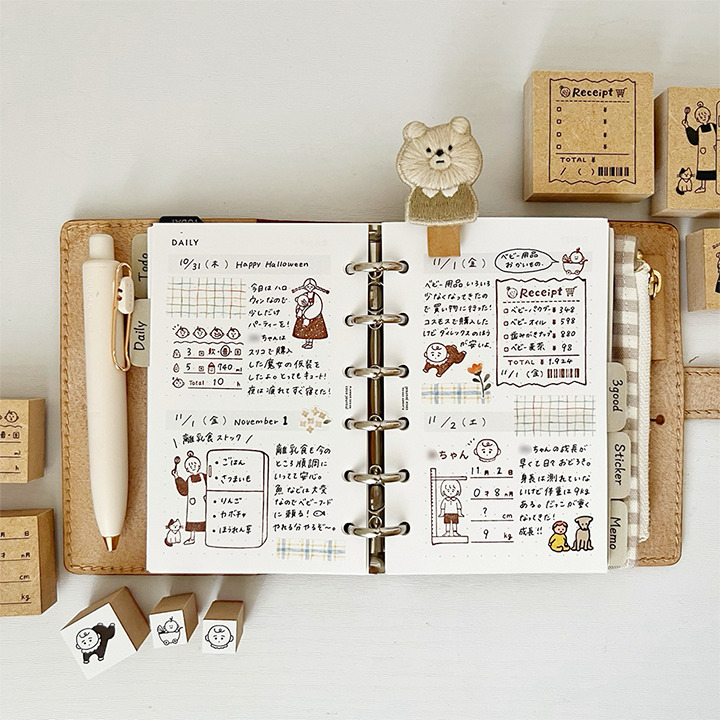 DAILY
10/31 (木) Happy Halloween
今日はハロ
ウィンなので
少しだけ
パーティーを!
ちゃんは
スリコで購入
した魔女の仮装を
したよ。とってもキュート!
夜は疲れてすぐ寝てた!
3 回
5 回 740 ml
Total 10 h
11/1 (金) November 1
離乳食ストック
・ごはん
・さつまいも
・りんご
・カボチャ
・ほうれん草
離乳食も今の
ところ順調に
いってて安心。
魚などは大変
なのでベビーフード
に頼る!
やれる分やるぞ〜。
11/1 (金)
ベビー用品
おかいもの。
ベビー用品いろいろ
少なくなってきたの
で買い物に行った!
コスモスで購入した
けどダイレックスのほう
が安いよ
Receipt
ベビーパウダー ¥ 348
ベビーオイル ¥ 598
歯みがきナップ ¥ 880
ベビー麦茶 ¥ 98
TOTAL ¥ 1.924
11/1 (金)
11/2 (土)
ちゃん
11月2日
0才8ヵ月
? cm
9 kg
ちゃんの成長が
早くて日々おどろき。
身長は測れていな
いけど体重は9kg
ある。だっこが重く
なってきた!
成長!!
Todo
Daily
3good
Sticker
Memo
Receipt
¥
¥
¥
¥
TOTAL ¥
/ ( )
回
才 ヵ月
cm
kg